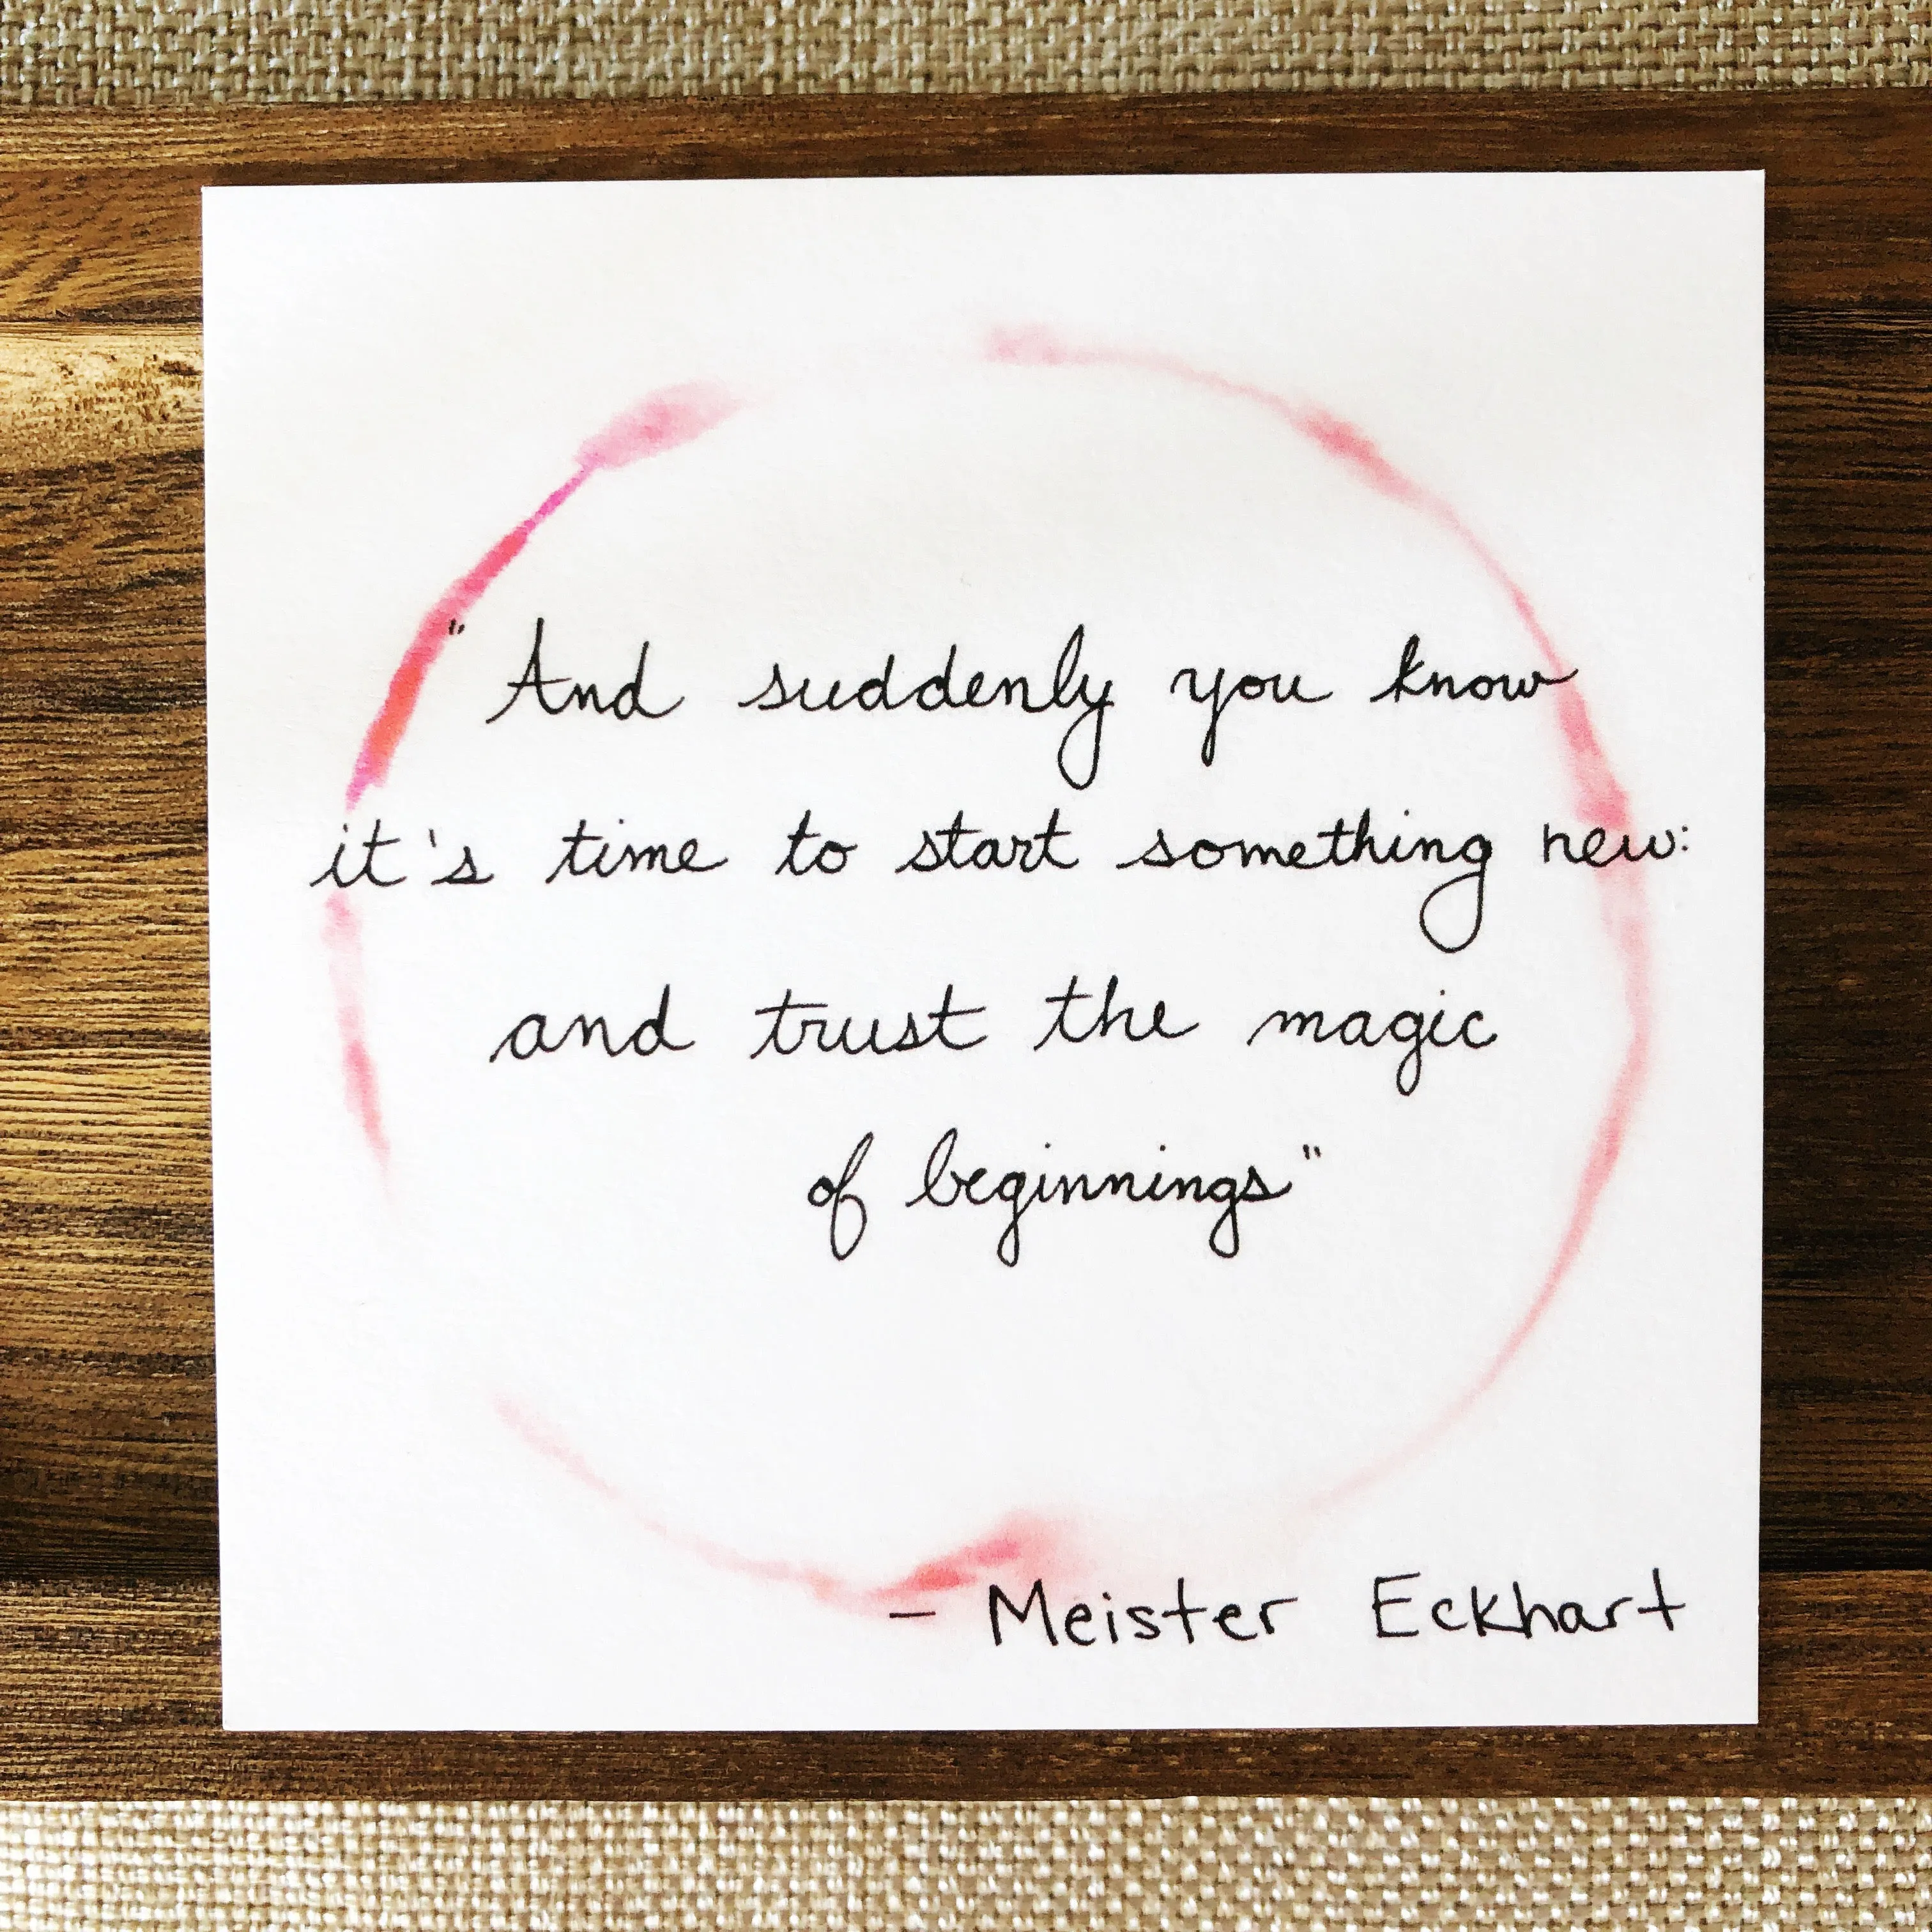 "And suddenly you know
it's time to start something new:
and trust the magic
of beginnings"
- Meister Eckhart